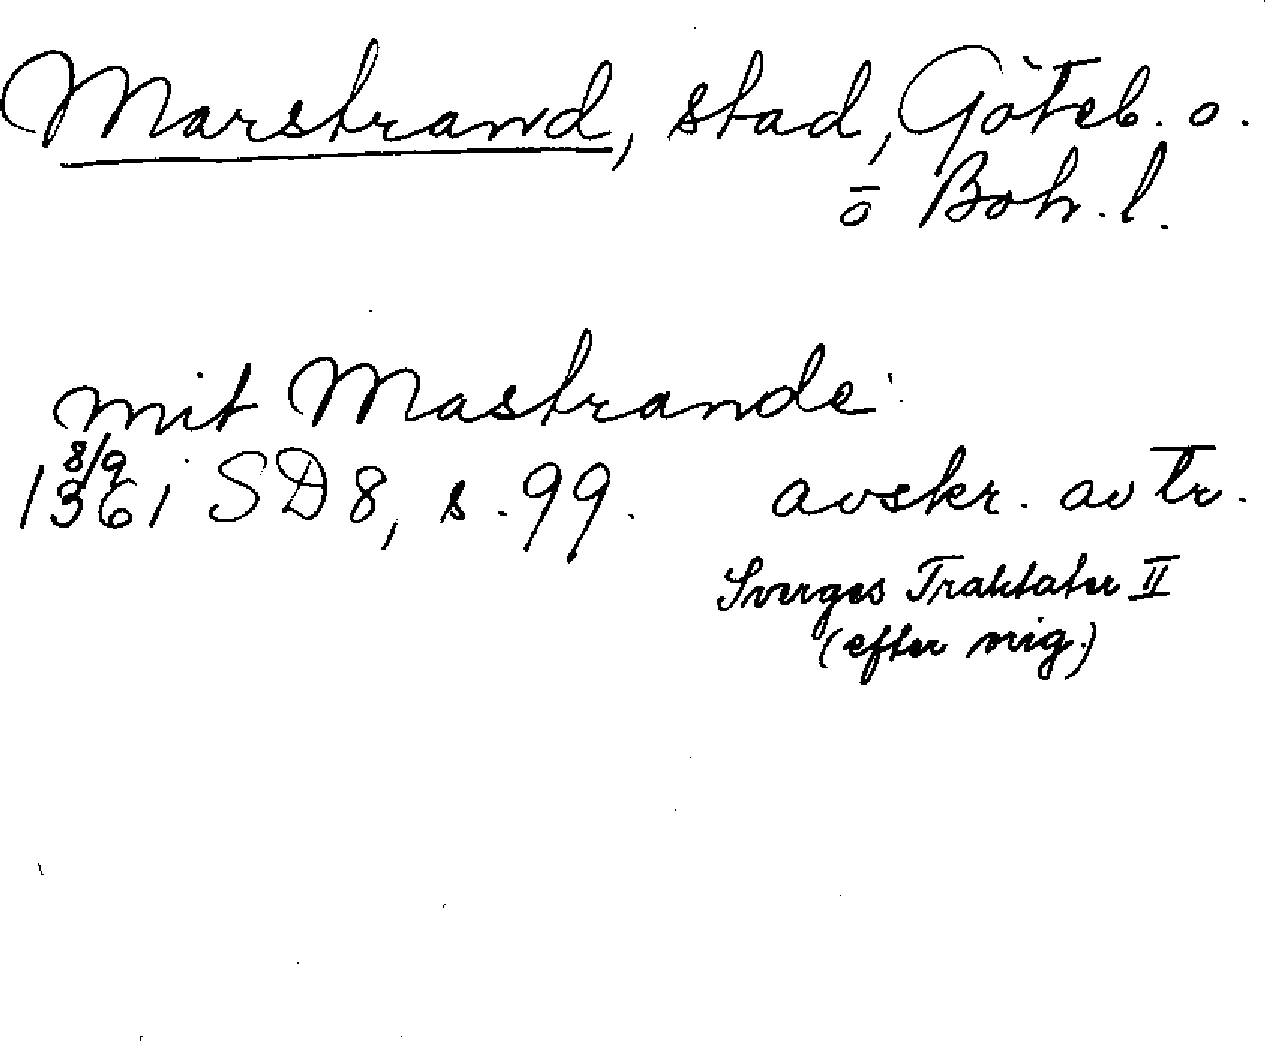 Marstrand, stad, Göteb. o.
ö Boh. l.
mit Mastrande
8/9
1361 SD 8, s. 99. avskr. av tr.
Sverges Traktater II
(efter orig.)